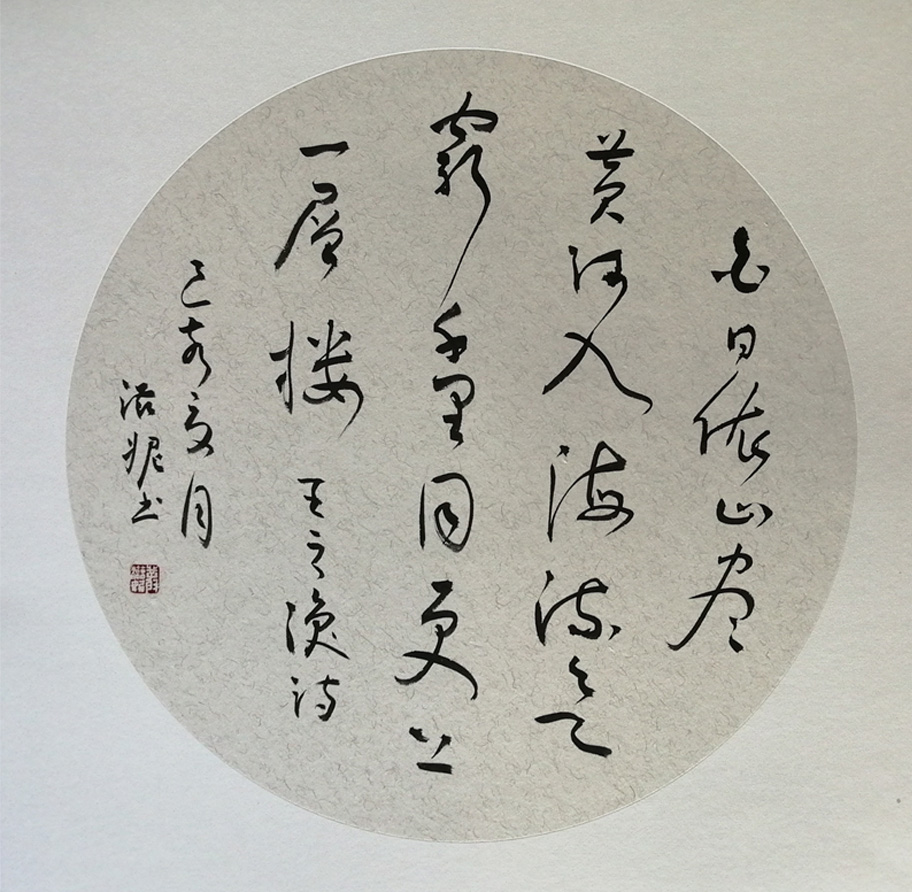 白日依山尽
黄河入海流欲
窮千里目更上
一層楼 王之涣诗
己亥夏月
书